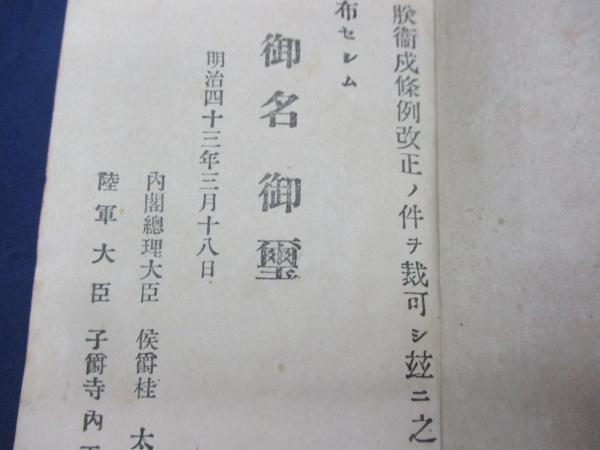 朕衞戍條例改正ノ件ヲ裁可シ玆ニ之
布セシム
御名御璽
明治四十三年三月十八日
內閣總理大臣 侯爵桂 太
陸軍大臣 子爵寺內